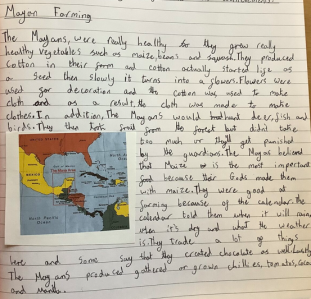 Mayan Farming
The Mayans, were really healthy so they grew really
healthy vegetables such as maize, beans and squash. They produced
cotton in their farm and cotton actually started life as
a seed then slowly it turns into a flowers. Flowers were
used for decoration and the cotton was used to make
cloth and as a result, the cloth was made to make
clothes. In addition, The Mayans would hunt deer, fish and
birds. They then took from the forest but didn't take
too much or they'll get punished
by the guardians. The Mayans believed
that Maize is the most important
food because their Gods made them
with maize. They were good at
farming because of the calendar. the
calendar told them when it will rain
when it's dry and what the weather
is. They trade a lot of things
here and some say that they created chocolate as well. Lastly
The Mayans produced gathered or grown chillies, tomatoes, cocoa
and